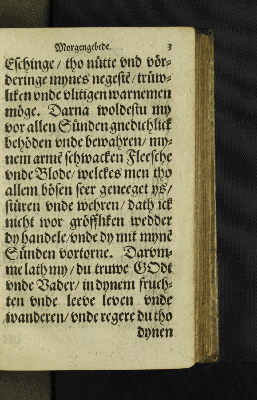 Morgengebede. 3
Eschinge / tho nütte vnd vör-
deringe mynes negestē / trüw-
liken vnde vlitigen warnemen
möge. Darna woldestu my
vor allen Sünden gnedichlick
behöden vnde bewahren / my-
nem armē schwacken Fleesche
vnde Blode / welckes men tho
allem bösen seer geneeget ys /
stüren vnde wehren / dath ick
nicht wor gröffliken wedder
dy handele / vnde dy mit mynē
Sünden vortorne. Darüm-
me lath my / du truwe GOdt
vnde Vader / in dynem fruch-
ten vnde leeve leven vnde
wanderen / vnde regere du tho
dynen